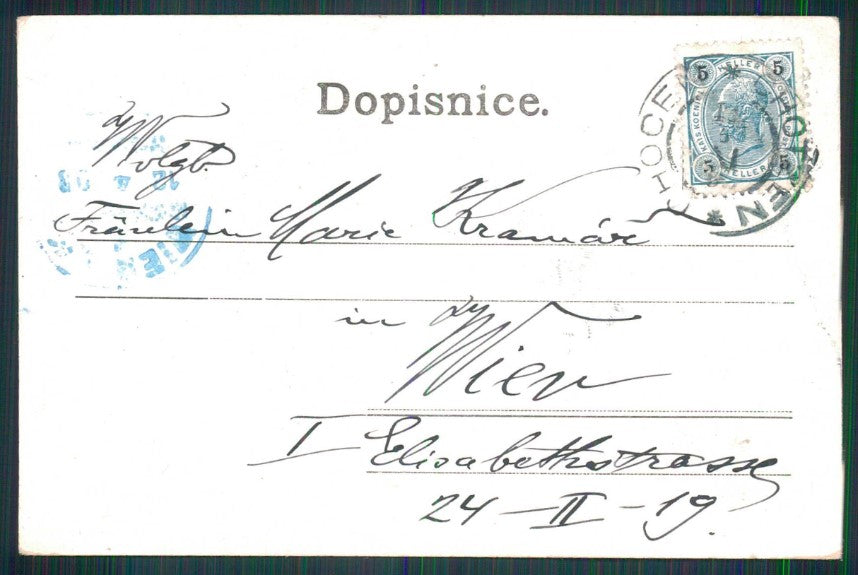 Dopisnice.
5 HELLER 5
5 HELLER 5
CHOCEŇ * CHOTZEN *
Wolgb.
Fräulein Marie Kramář
in Wien
I Elisabethstrasse
24 – II – 19.